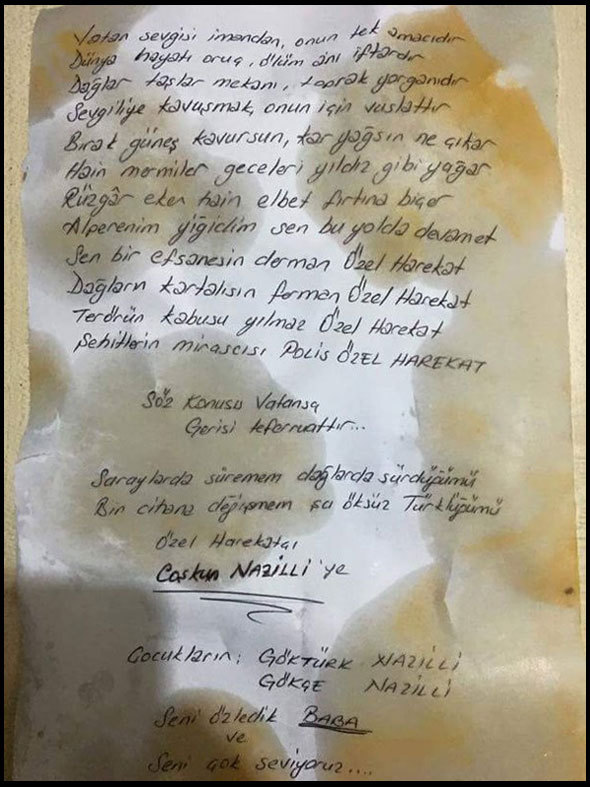 Vatan sevgisi imandan, onun tek amacıdır
Dünya hayatı oruç, ölüm anı iftardır
Dağlar taşlar mekanı, toprak yorganıdır
Sevgiliye kavuşmak, onun için vuslattır
Bırak güneş kavursun, kar yağsın ne çıkar
Hain mermiler geceleri yıldız gibi yağar
Rüzgâr eken hain elbet fırtına biçer
Alperenim yiğidim sen bu yolda devamet
Sen bir efsanesin derman Özel Harekat
Dağların kartalısın ferman Özel Harekat
Terörün kabusu yılmaz Özel Harekat
Şehitlerin mirasçısı POLİS ÖZEL HAREKAT
Söz Konusu Vatansa
Gerisi teferruattır...
Saraylarda süremem dağlarda sürdüğümü
Bin cihana değişmem şu öksüz Türklüğümü
Özel Harekatçı
Coşkun NAZİLLİ'ye
Çocukların; GÖKTÜRK NAZİLLİ
GÖKÇE NAZİLLİ
Seni özledik BABA
ve
Seni çok seviyoruz....